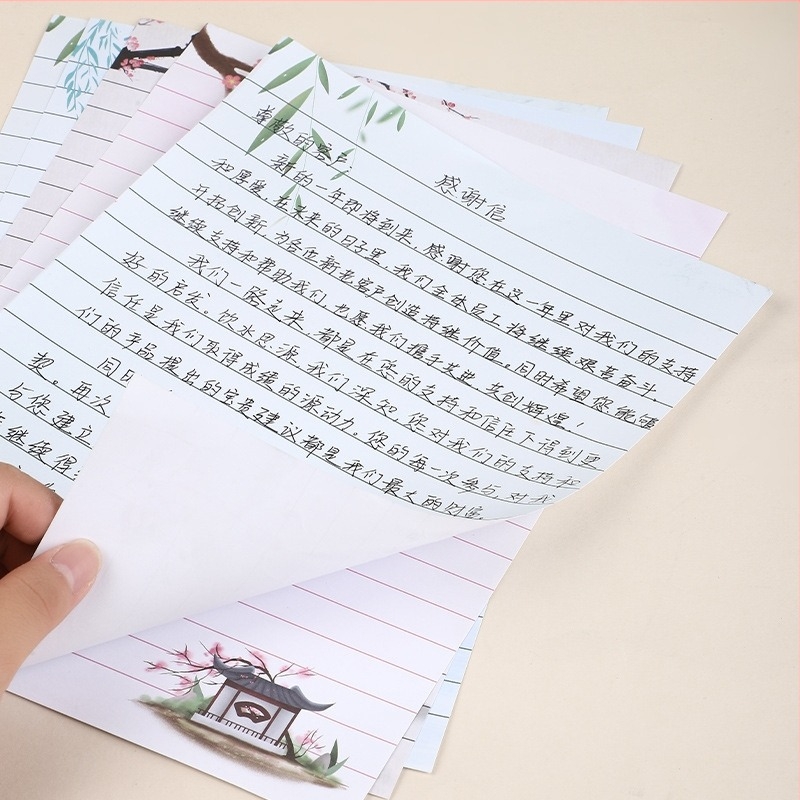 感谢信
尊敬的客户:
新的一年即将到来,感谢您在这一年里对我们的支持
和厚爱,在未来的日子里,我们全体员工将继续艰苦奋斗
开拓创新,为各位新老客户创造持继价值。同时希望您能够
继续支持和帮助我们,也愿我们携手共进,共创辉煌!
我们一路走来,都是在您的支持和信任下得到更
好的启发。饮水思源,我们深知,您对我们的支持和
信任是我们取得成绩的源动力。您的每一次参与,对我
们的产品提出的宝贵建议都是我们最大的财富。
同
契。再次
与您建立
继使得